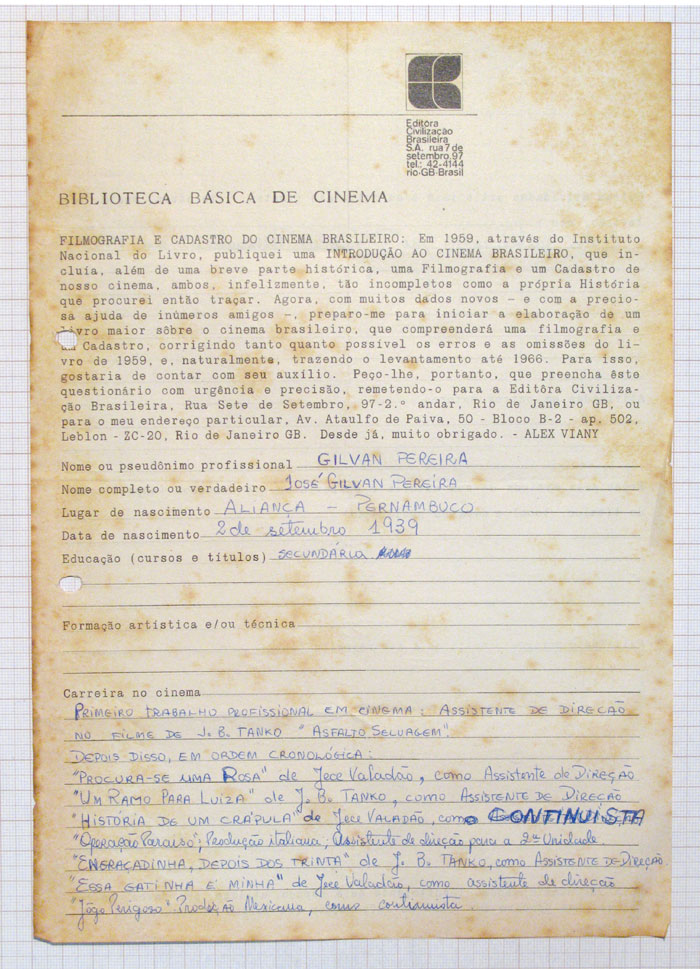 Editôra
Civilização
Brasileira
S.A. rua 7 de
setembro, 97
tel.: 42-4144
rio-GB-Brasil
BIBLIOTECA BÁSICA DE CINEMA
FILMOGRAFIA E CADASTRO DO CINEMA BRASILEIRO: Em 1959, através do Instituto
Nacional do Livro, publiquei uma INTRODUÇÃO AO CINEMA BRASILEIRO, que in-
cluía, além de uma breve parte histórica, uma Filmografia e um Cadastro de
nosso cinema, ambos, infelizmente, tão incompletos como a própria História
que procurei então traçar. Agora, com muitos dados novos – e com a precio-
sa ajuda de inúmeros amigos –, preparo-me para iniciar a elaboração de um
livro maior sôbre o cinema brasileiro, que compreenderá uma filmografia e
um Cadastro, corrigindo tanto quanto possível os erros e as omissões do li-
vro de 1959, e, naturalmente, trazendo o levantamento até 1966. Para isso,
gostaria de contar com seu auxílio. Peço-lhe, portanto, que preencha êste
questionário com urgência e precisão, remetendo-o para a Editôra Civiliza-
ção Brasileira, Rua Sete de Setembro, 97-2.º andar, Rio de Janeiro GB, ou
para o meu endereço particular, Av. Ataulfo de Paiva, 50 - Bloco B-2 - ap. 502,
Leblon - ZC-20, Rio de Janeiro GB. Desde já, muito obrigado. - ALEX VIANY
Nome ou pseudônimo profissional GILVAN PEREIRA
Nome completo ou verdadeiro JOSÉ GILVAN PEREIRA
Lugar de nascimento ALIANÇA – PERNAMBUCO
Data de nascimento 2 de setembro 1939
Educação (cursos e títulos) SECUNDÁRIA
Formação artística e/ou técnica
Carreira no cinema
PRIMEIRO TRABALHO PROFISSIONAL EM CINEMA: ASSISTENTE DE DIREÇÃO
NO FILME DE J. B. TANKO "ASFALTO SELVAGEM".
DEPOIS DISSO, EM ORDEM CRONOLÓGICA:
"PROCURA-SE UMA ROSA" de Jece Valadão, como Assistente de Direção
"UM RAMO PARA LUIZA" de J. B. TANKO, como ASSISTENTE DE DIREÇÃO
"HISTÓRIA DE UM CRÁPULA" de Jece VALADÃO, como CONTINUISTA
"Operação Paraiso", Produção italiana, Assistente de direção para a 2ª Unidade.
"ENGRAÇADINHA, DEPOIS DOS TRINTA" de J. B. TANKO, como ASSISTENTE DE DIREÇÃO
"ESSA GATINHA É MINHA" de Jece Valadão, como assistente de direção
"Jôgo Perigoso" Produção Mexicana, como continuista.